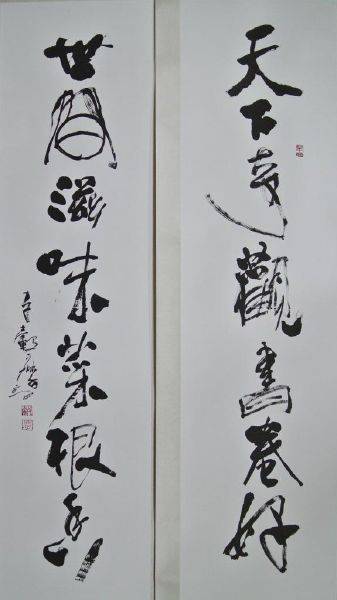 天下奇觀書卷好
世間滋味菜根香